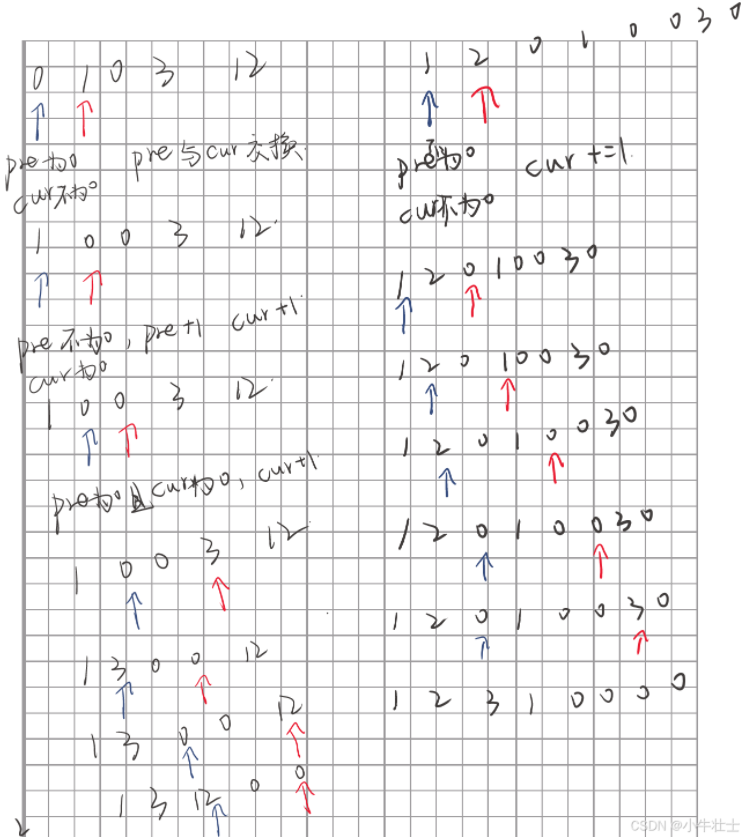 0 1 0 3 12
pre为0 pre与cur交换
cur不为0
1 0 0 3 12
pre不为0, pre+1 cur+1
cur为0
1 0 0 3 12
pre为0且cur为0, cur+1
1 0 0 3 12
1 3 0 0 12
1 3 0 0 12
1 3 12 0 0
1 2 0 1 0 0 3 0
pre不为0 cur+=1
cur不为0
1 2 0 1 0 0 3 0
1 2 0 1 0 0 3 0
1 2 0 1 0 0 3 0
1 2 0 1 0 0 3 0
1 2 0 1 0 0 3 0
1 2 3 1 0 0 0 0
CSDN @小牛壮士